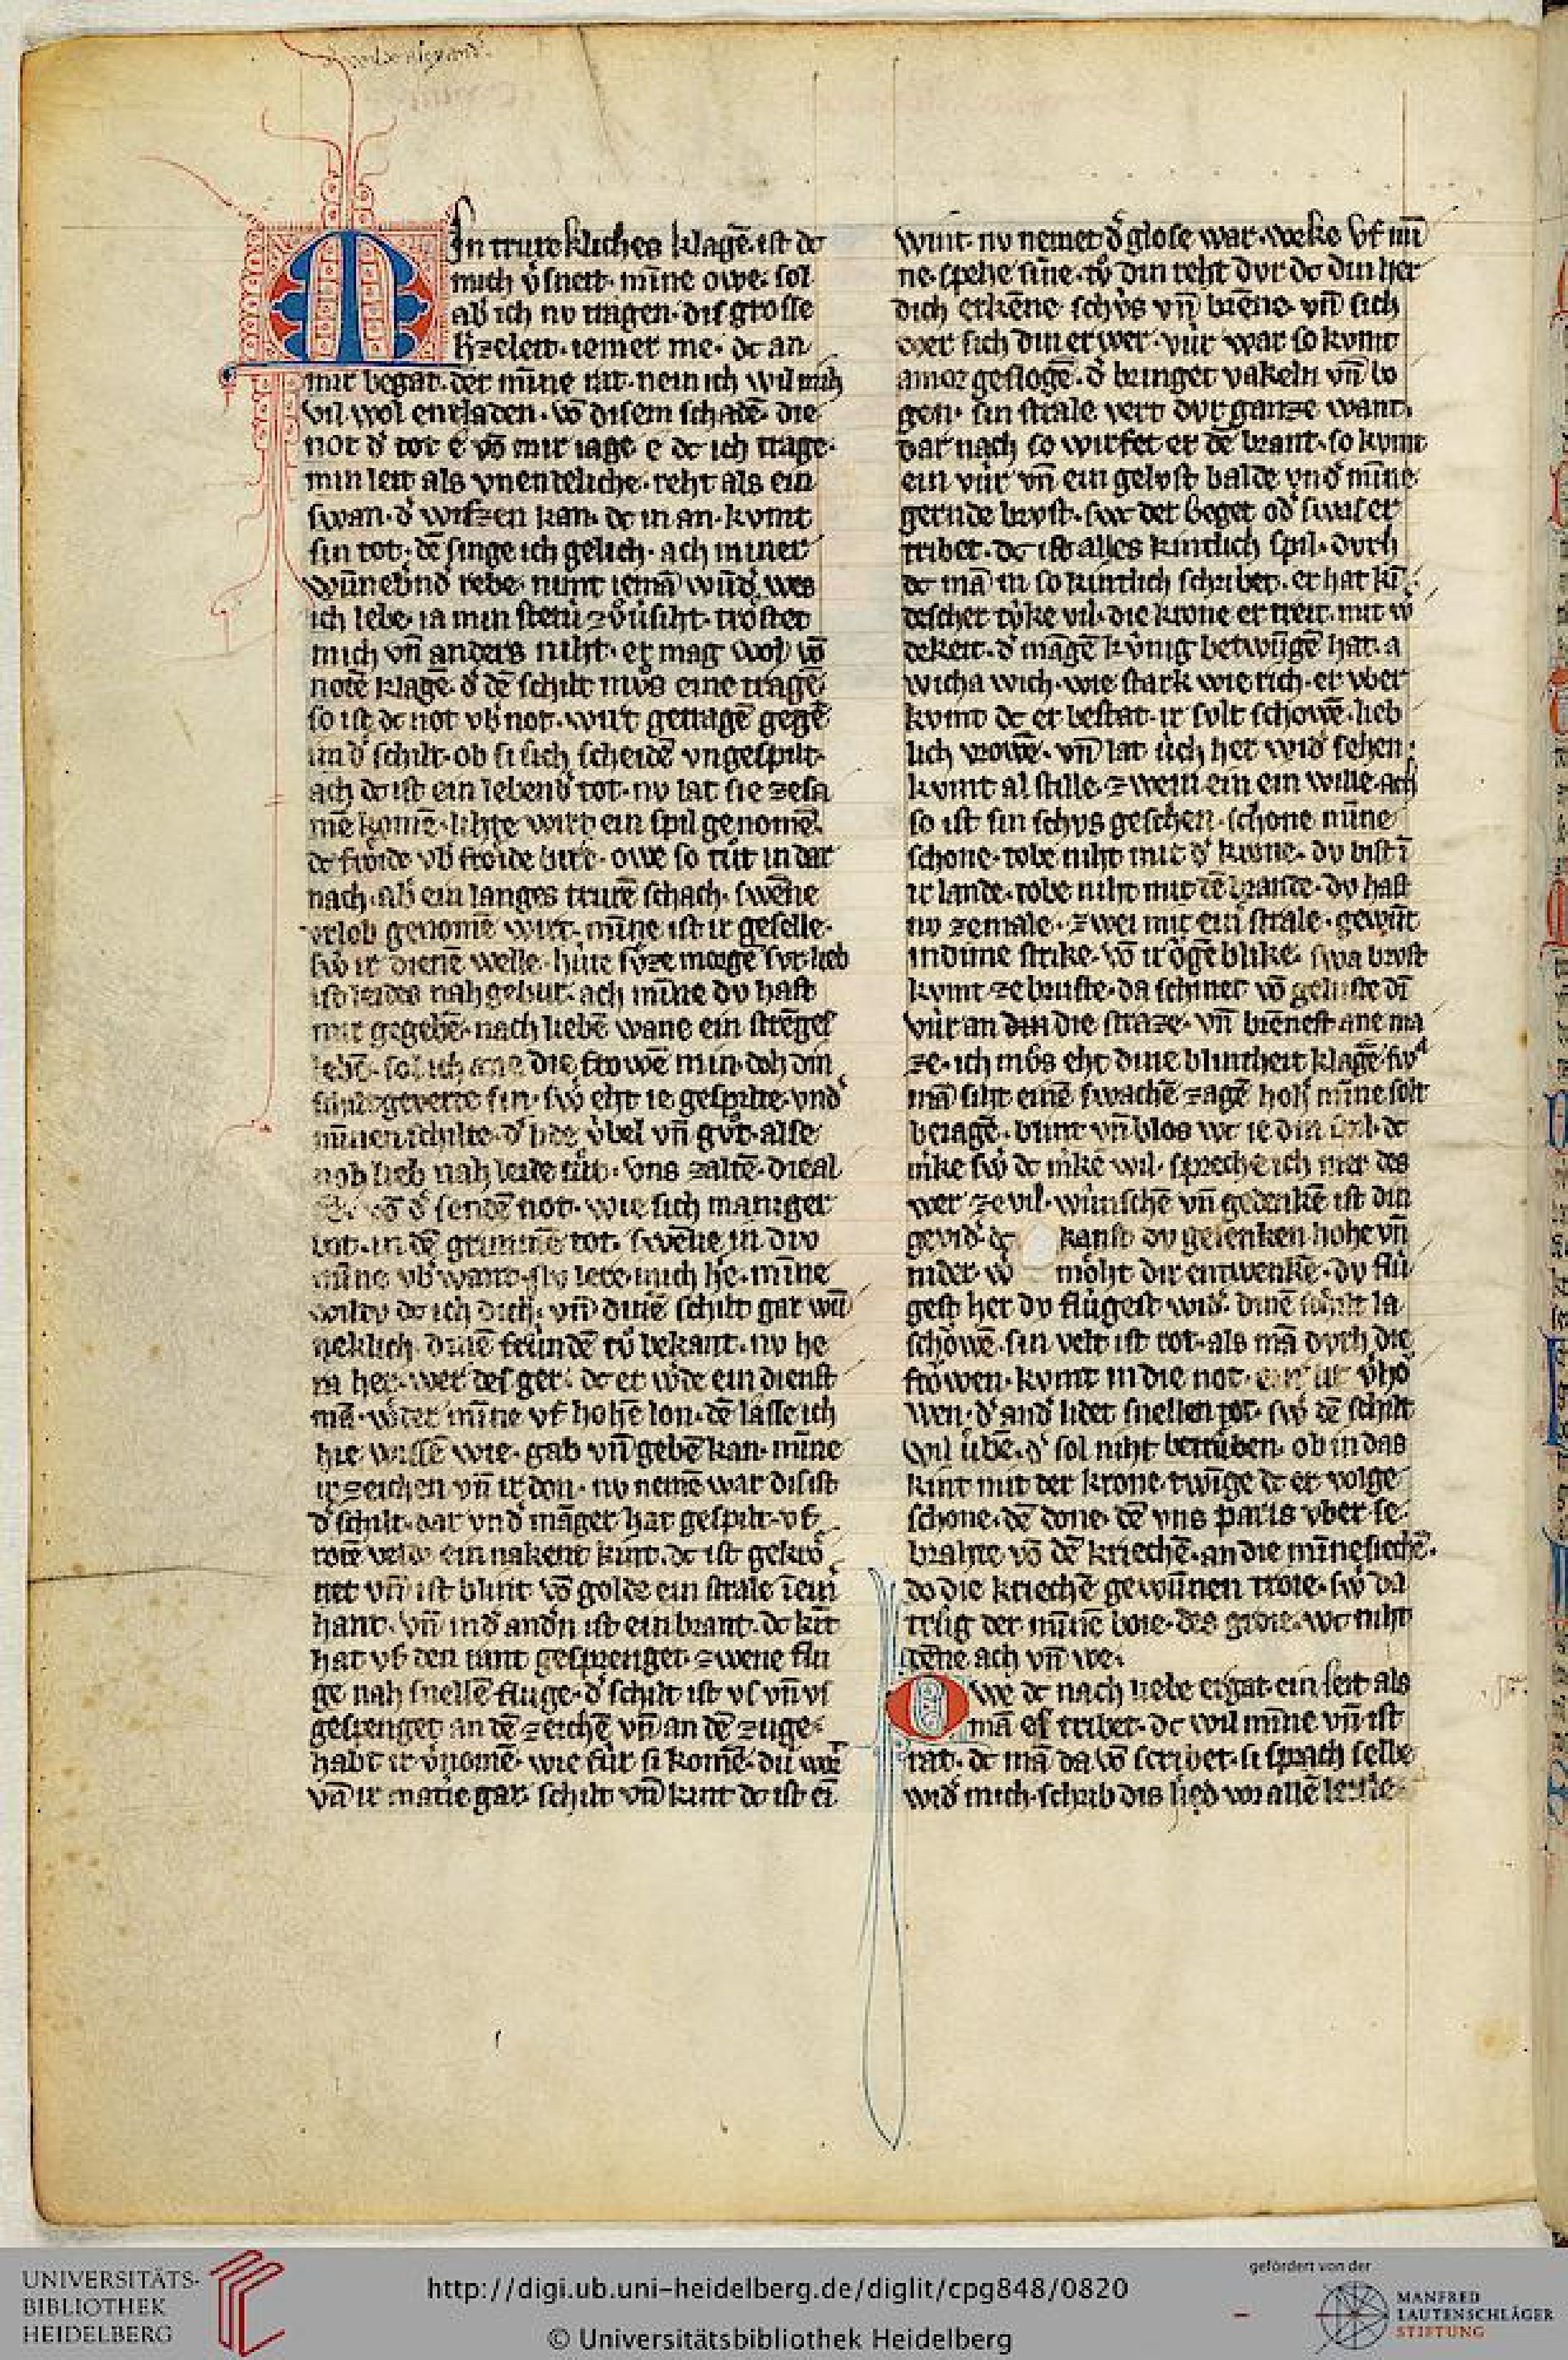 Min trureklichez klagē ist dc
mich v̾sneit. min̄e owe. sol
ab̾ ich nv tragen. dis grosse
h̾zeleit. iemer me. dc an
mir begat. der min̄e rat. nein ich wil mich
vil wol entladen. vō disem schadē. die
not d̾ tot e vō mir iage. e dc ich trage.
min leit als vnendeliche. reht als ein
swan. d̾ wissen kan. dc in an. kvmt
sin tot. dē singe ich gelich. ach miner
ich lebe. ia min steti zv̊v̾siht. trôstet
mich vn̄ anders niht. er mag wol vō
notē klagē. d̾ dē schilt mv̊s eine tragē
so ist dc not vb̾ not. wirt getragē gegē
im d̾ schilt. ob si sich scheidē vngespilt.
ach dc ist ein lebend̾ tot. nv lat sie zesa
mē komē. lihte wirt ein spil genomē.
dc frôide vb̾ frôide birt. owe so tůt in dar
nach. ab̾ ein langes trurē schach. swēne
vrlob genomē wirt. min̄e ist ir geselle.
sw̾ ir dienē welle. hüte sv̊ze morgē svr. lieb
ist leides nahgebur. ach min̄e dv hast
mir gegebē. nach liebē wane ein strēges
lebē. sol ich ane die frowē min. doh din
schiltgeverte sin. sw̾ eht ie gespilte. vnd̾
min̄en schilte. d̾ v̊bel vn̄ gv̊t. alse
noh lieb nah leide tůt. vns zaltē. die al
vō d̾ sendē not. wie sich maniger
bot. in dē grim̄mē tot. swēne in dvo
min̄e vb̾want. mich he. min̄e
wiltv dc ich dich. vn̄ dinē schilt gar wn̄
neklich. dinē frúndē tv̊ bekant. nv he
ra her. wer des ger. dc er w̾de ein dienst
mā. w̾der min̄e vf hohē lon. dē lasse ich
hie wissē wie. gab vn̄ gebē kan. min̄e
ir zeichen vn̄ ir don. nv nemē war dis ist
d̾ schilt. dar vnd̾ māger hat gespilt. vf
rotē velde ein nakent kint. dc ist gekrô
net vn̄ ist blint vō golde ein strale in eiṅ
hant. vn̄ in d̾ andn̾ ist ein brant. dc kīt
hat vf den rant gesprenget. zwene flü
ge nah snellē fluge. d̾ schilt ist vs vn̄ vf
gesprenget an dē zeichē vn̄ an dē zuge.
habt ir v̾nomē. wie für si komē. dü wa̾
vn̄ ir matie gar. schilt vn̄ kint dc ist eī
wint. nv nemet d̾ glose war. weke vf mī
ne. spehe sin̄e. tv̊ din reht dvr dc din her
dich erkēne. schv̊s vn̄ brēne. vn̄ sich
wer sich din erwer. vür war so kvmt
amor geflogē. d̾ bringet vakeln vn̄ bo
gen. sin strale vert dvr ganze want.
dar nach so wirfet er dē brant. so kvmt
ein vür vn̄ ein gelvst balde vnd̾ min̄e
gernde brvst. swc der beget od̾ swas er
tribet. dc ist alles kintlich spil. dvrh
dc mā in so kintlich schribet. er hat kī
descher tv̊ke vil. die krone er treit. mit w̾
dekeit. d̾ māgē kv̊nig betwn̄gē hat. a
wicha wich. wie stark wie rich. er vber
kvmt dc er bestat. ir sv̊lt schowē. lieb
lich vrowē. vn̄ lat üch her wid̾ sehen.
kvmt al stille. zwein ein ein wille. ach
so ist sin schvs geschen. schone min̄e
schone. tobe niht mit d̾ krone. dv bist ī
ir lande. tobe niht mit dē brande. dv hast
nv zemale. zwei mit eiṅ strale. gewn̄t
in dine strike. vō ir ôgē blike. swa brvst
kvmt ze brvste. da schinet vō gelvste dī
vür an din die straze. vn̄ brēnest ane ma
ze. ich mv̊s eht dine blintheit klagē. swa
mā siht einē swachē zagē. hoh min̄e solt
beiagē. blint vn̄ blos wc ie din
wer ze vil. wünschē vn̄ gedenkē ist din
gevid̾. dc kanst dv gelenken hohe vn̄
nider. w̾ môht dir entwenkē. dv flü
gest her dv flügest wid̾. dinē schilt la
schôwē. sin velt ist rot. als mā dvrh die
frôwen. kvmt in die not.
wen. d̾ and̾ lidet snellen tot. sw̾ dē schilt
wil übē. d̾ sol niht betrüben. ob in das
kint mit der krone. twīge dc er volge
schone. dē done. dē vns paris vber se.
brahte vō dē kriechē. an die min̄e siechē.
do die kriechē gewn̄nen troie. sw̾ da
trůg der min̄ē boie. des groie. wc niht
wēne ach vn̄ we.
Owe dc nach liebe ergat. ein leit als
mā es tribet. dc wil min̄e vn̄ ist
rat. dc mā da vō scribet. si sprach selbe
wid̾ mich. schrib dis lied vor allē
UNIVERSITÄTS-
BIBLIOTHEK
HEIDELBERG
http://digi.ub.uni-heidelberg.de/diglit/cpg848/0820
© Universitätsbibliothek Heidelberg
gefördert von der
MANFRED
LAUTENSCHLÄGER
STIFTUNG